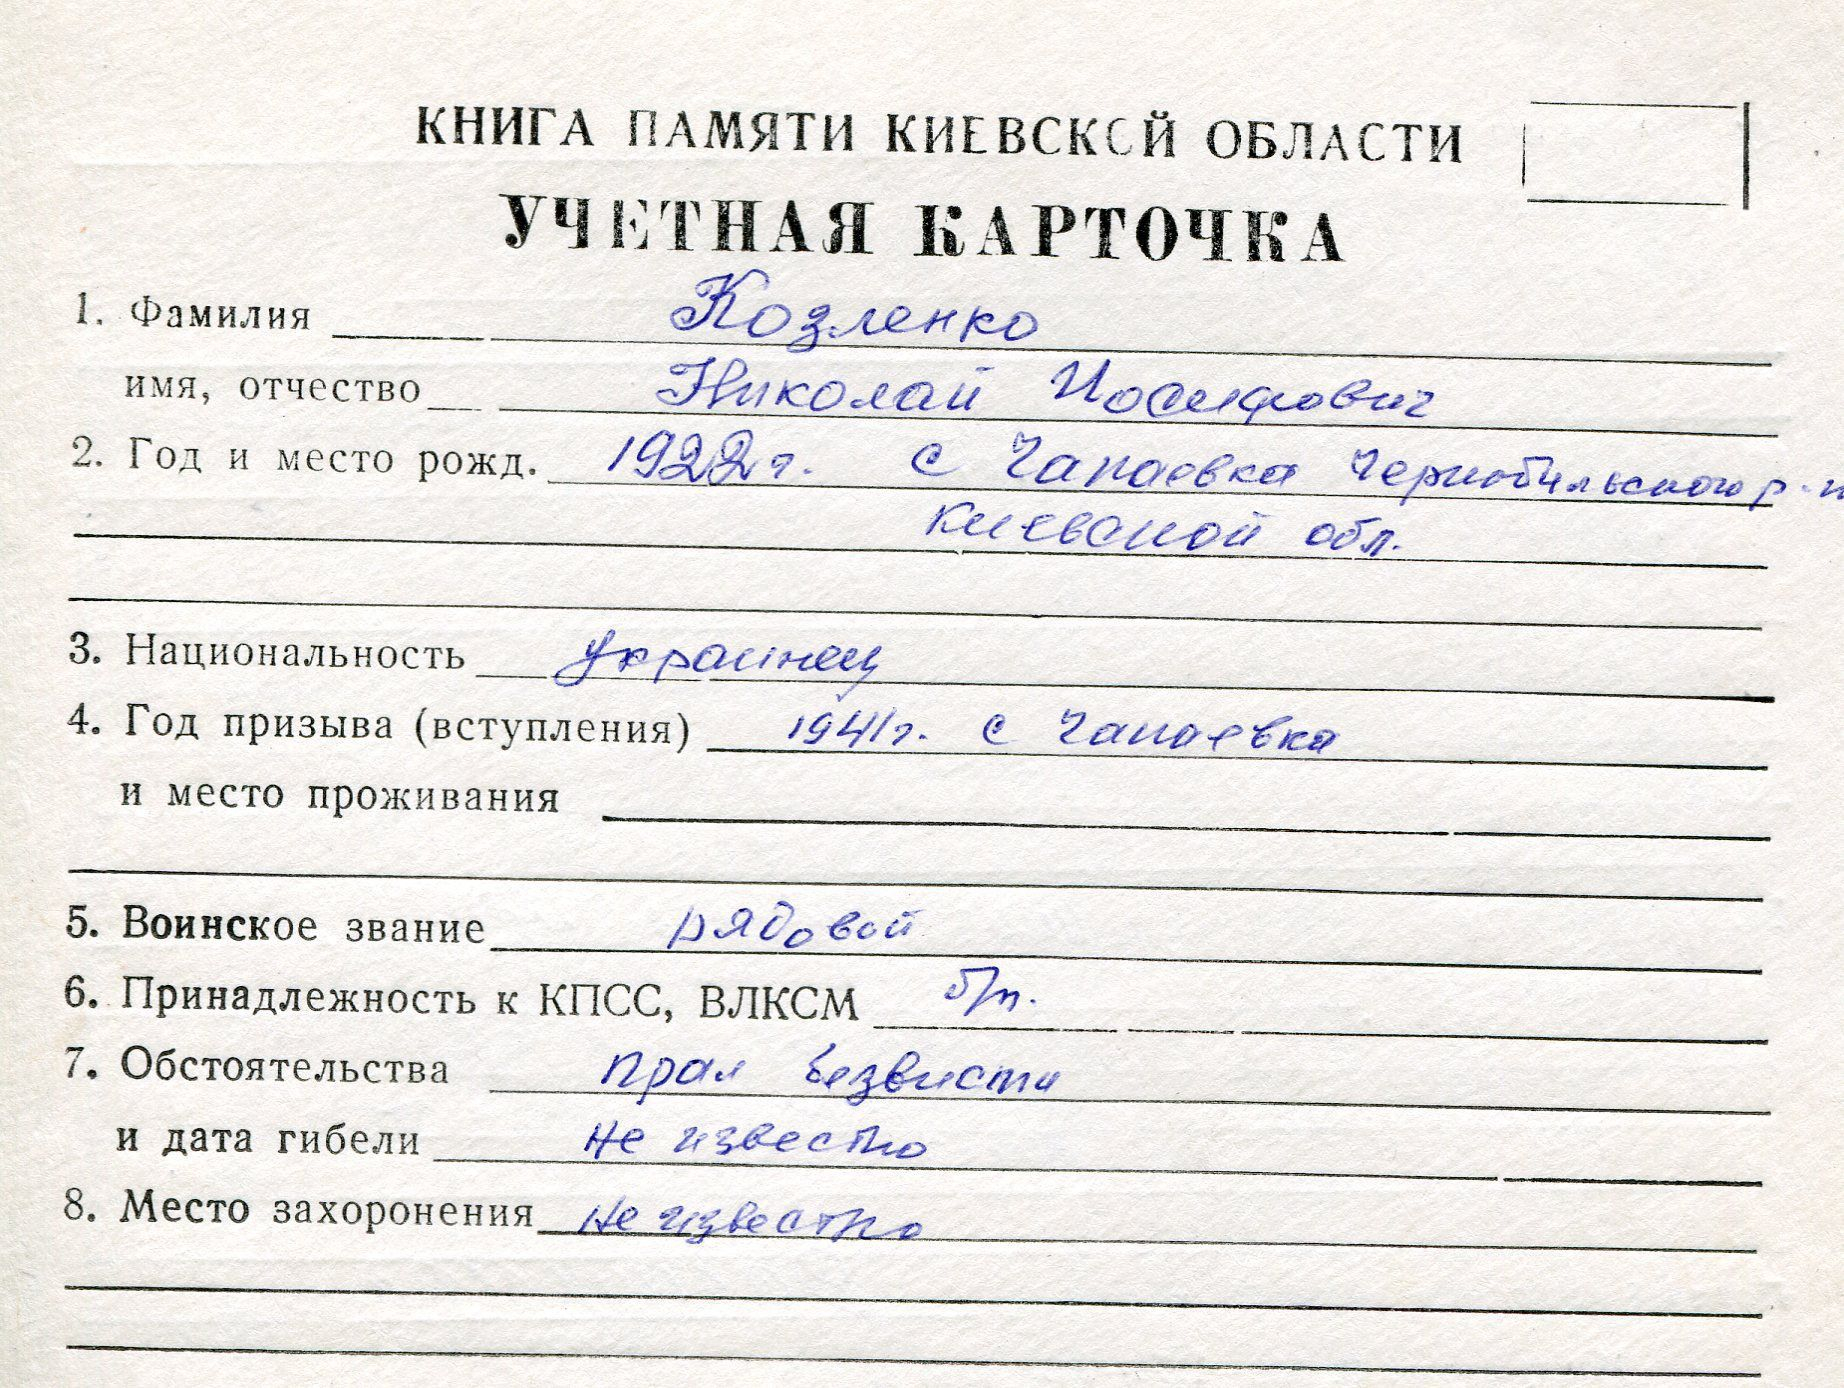 КНИГА ПАМЯТИ КИЕВСКОЙ ОБЛАСТИ
УЧЕТНАЯ КАРТОЧКА
1. Фамилия Козленко
имя, отчество Николай Иосифович
2. Год и место рожд. 1922 г. с Чапаевка Чернобыльского р-н
Киевской обл.
3. Национальность украинец
4. Год призыва (вступления) 1941 г. с Чапаевка
и место проживания
5. Воинское звание рядовой
6. Принадлежность к КПСС, ВЛКСМ б/п.
7. Обстоятельства прал безвисти
и дата гибели не известно
8. Место захоронения не известно